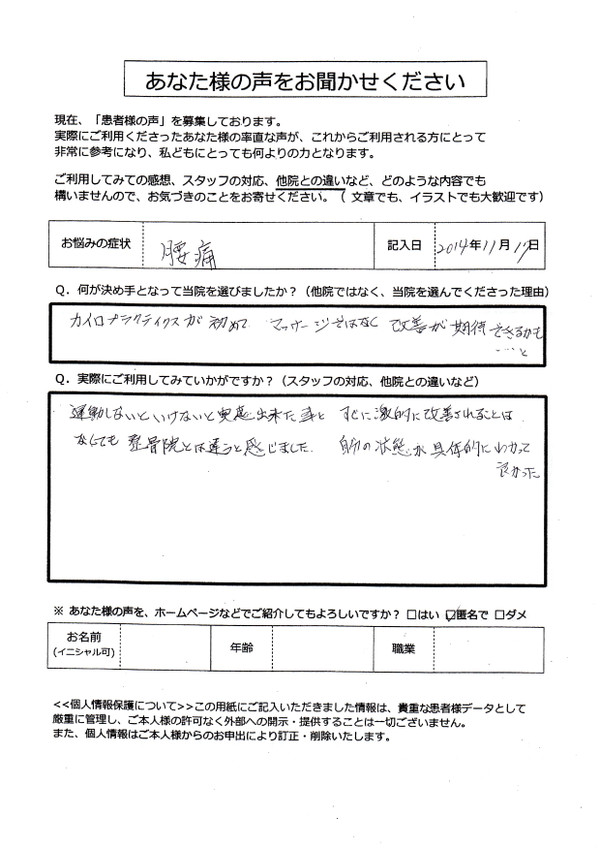 あなた様の声をお聞かせください
現在、「患者様の声」を募集しております。
実際にご利用くださったあなた様の率直な声が、これからご利用される方にとって
非常に参考になり、私どもにとっても何よりの力となります。
ご利用してみての感想、スタッフの対応、他院との違いなど、どのような内容でも
構いませんので、お気づきのことをお寄せください。（ 文章でも、イラストでも大歓迎です）
お悩みの症状 腰痛 記入日 2014年11月17日
Q．何が決め手となって当院を選びましたか？（他院ではなく、当院を選んでくださった理由）
カイロプラクティクスが初めて マッサージではなく 改善が期待できるかも
…と
Q．実際にご利用してみていかがですか？（スタッフの対応、他院との違いなど）
運動しないといけないと実感出来た事と すぐに激的に改善されることは
なくても 整骨院とは違うと感じました. 自分の状態が具体的にわかって
良かった
※ あなた様の声を、ホームページなどでご紹介してもよろしいですか？ □はい ☑匿名で □ダメ
お名前 年齢 職業
(イニシャル可)
<<個人情報保護について>>この用紙にご記入いただきました情報は、貴重な患者様データとして
厳重に管理し、ご本人様の許可なく外部への開示・提供することは一切ございません。
また、個人情報はご本人様からのお申出により訂正・削除いたします。